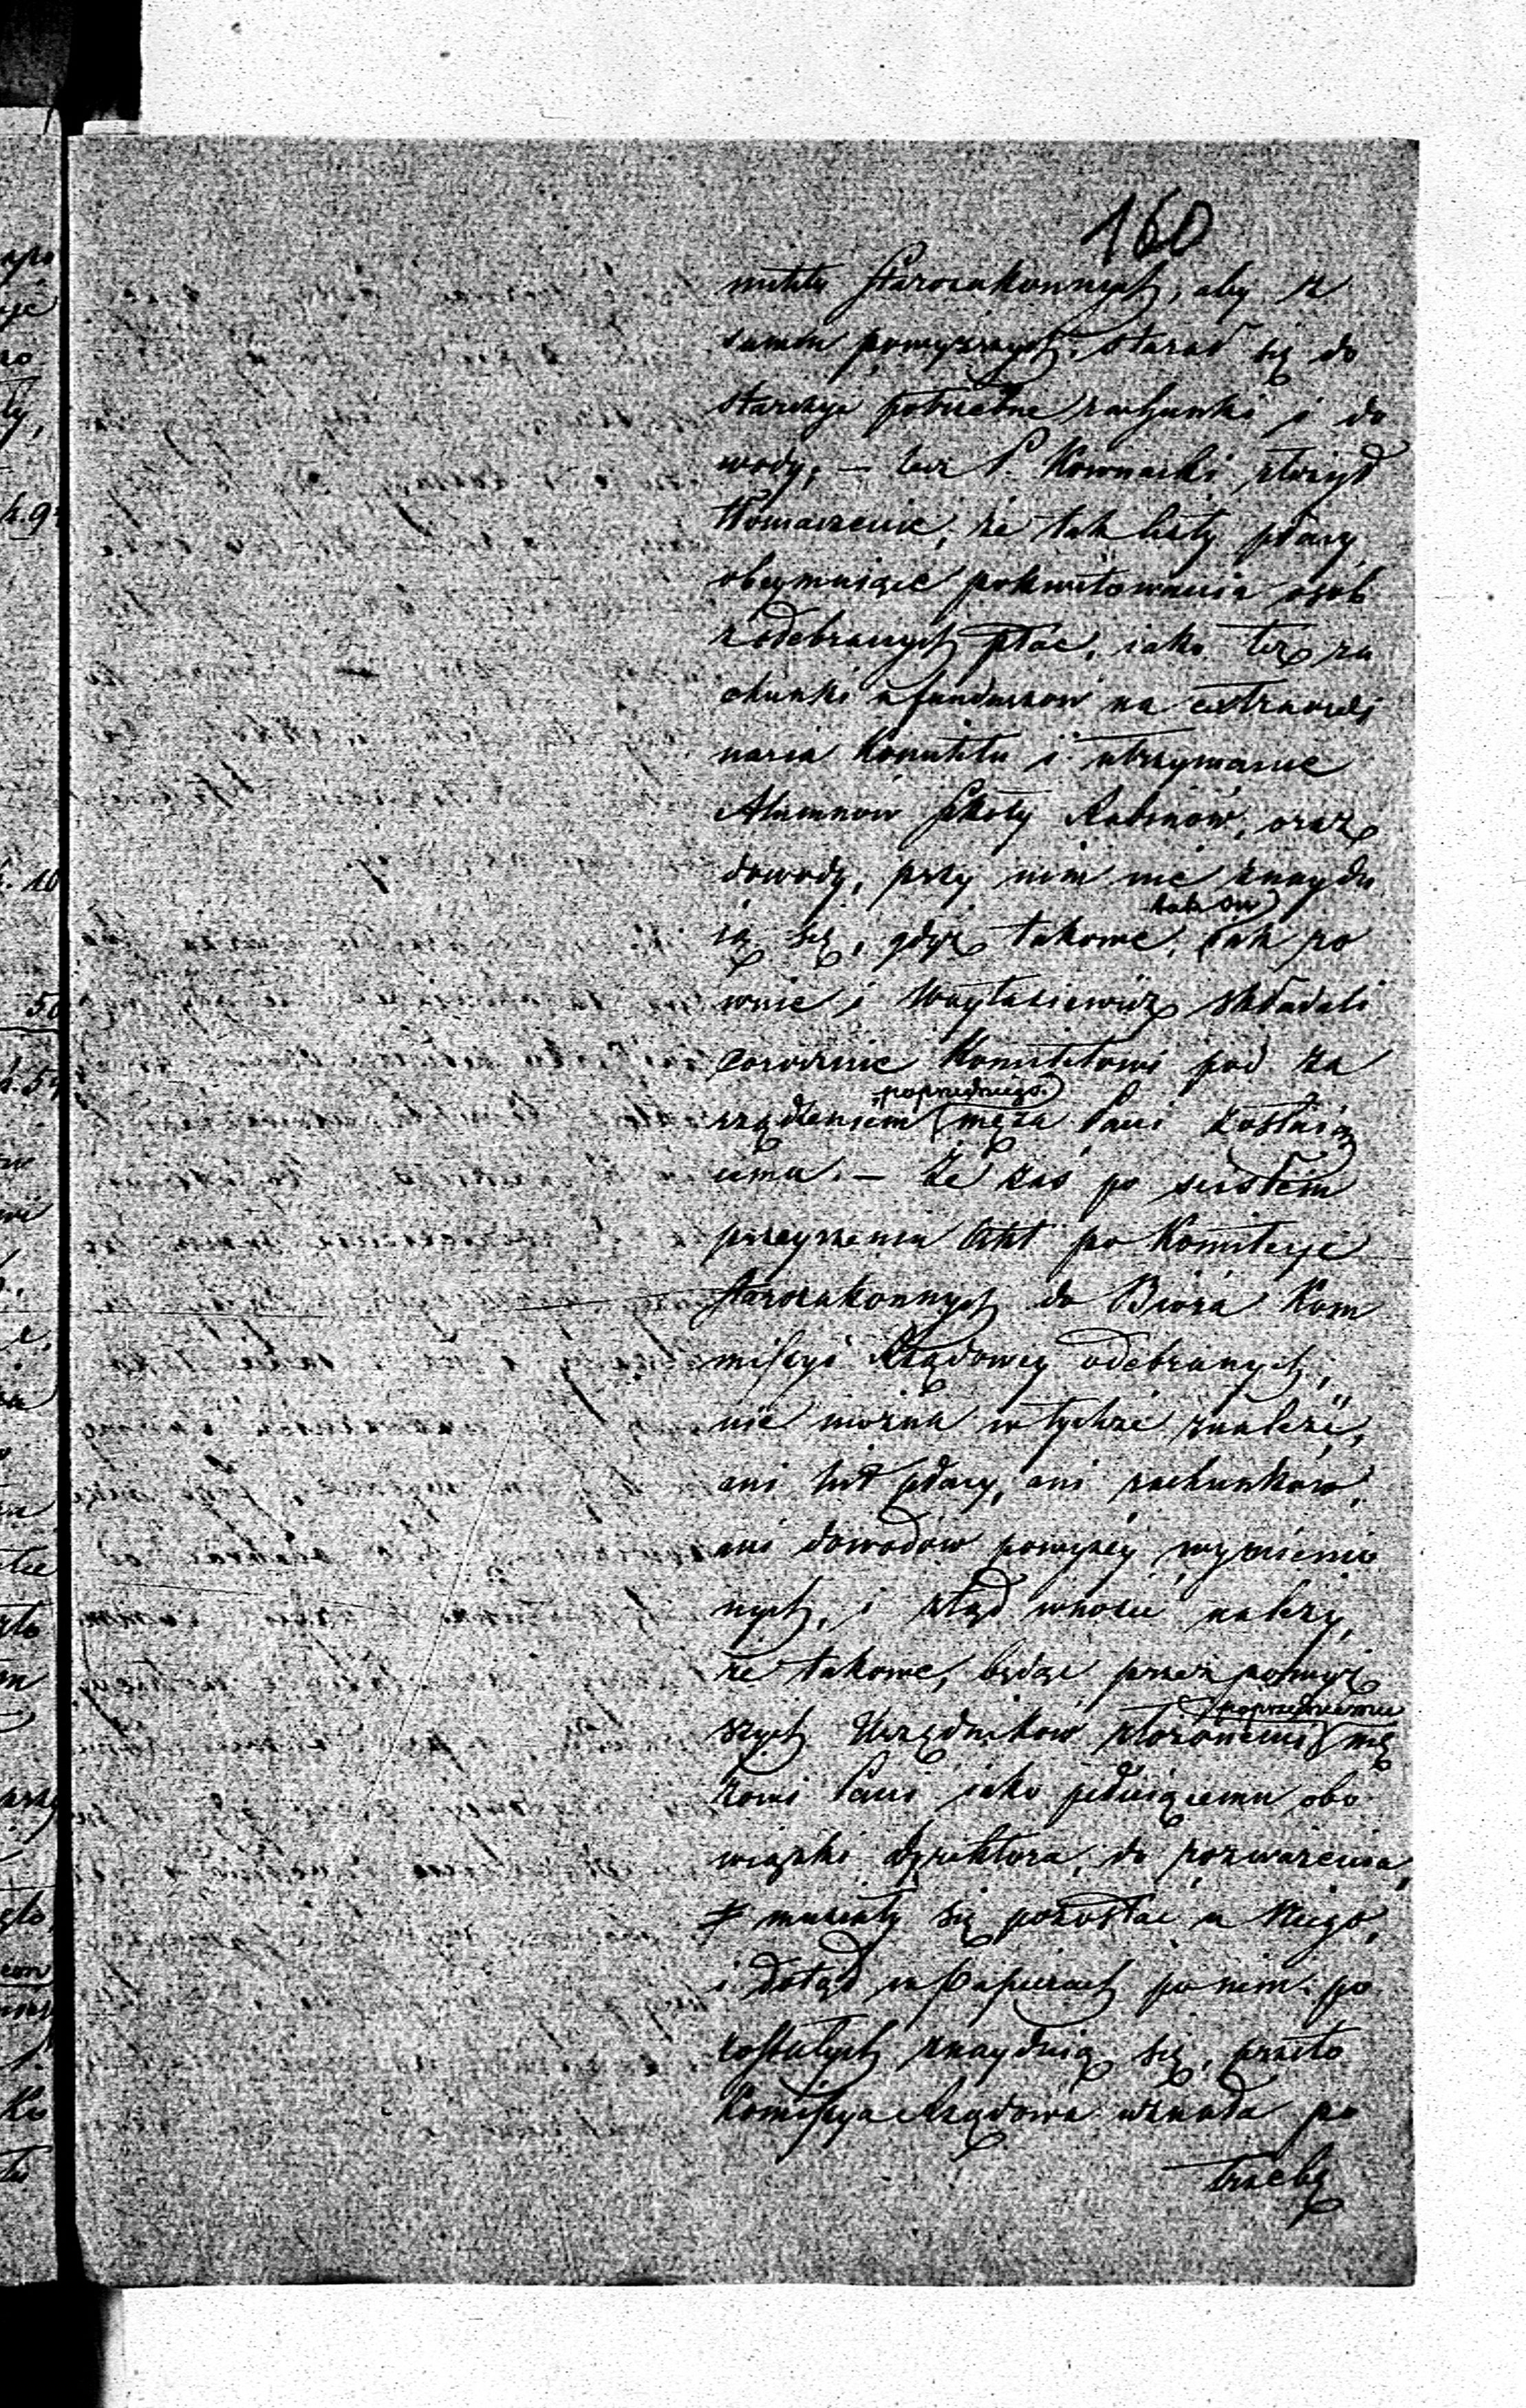 160
mitetu Starozakonnych, aby z
summ powyższych, starał się do
starczyć potrzebne rachunki i do
wody, – lecz P. Kownacki złożył
tłomaczenie, że tak listy płacy
obeymuiące pokwitowania osób
z odebranych płac, iako też ra
chunki z funduszów na extraordi
naria Komitetu i utrzymanie
Alumnów Szkoły Rabinów, oraz
dowody, przy nim nie znaydu
ią się, gdyż takowe, tak on iak ró
wnie i Woytasiewicz składali
corocznie Komitetowi pod za
rządzeniem poprzedniego męża Pani zostaią
cemu. – Że zaś po ścisłem
przeyrzeniu Akt po Komitecie
Starozakonnych do Biora Kom
missyi Rządowey odebranych,
nie można w tychże znaleźć,
ani list płacy, ani rachunków,
ani dowodów powyżey wymienio
nych, i ztąd wnosić należy,
że takowe, będąc przez powyż
szych Urzędników złożonemi poprzedniemu mę
żowi Pani iako pełniącemu obo
wiązki Dyrektora, do rozważenia,
musiały się pozostać u Niego,
i dotąd w Papierach po nim po
zostałych znayduią się, przeto
Kommissya Rządowa uznała po
trzebę